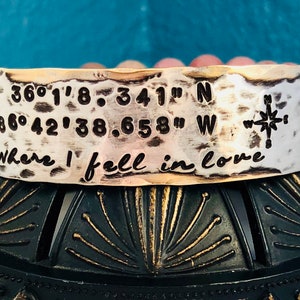 36°1'8.341" N
86°42'38.658" W
Where I fell in love